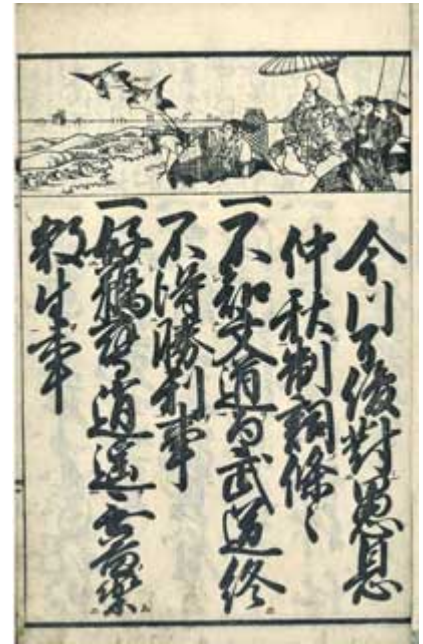 今川了俊對愚息
仲秋制詞條〻
一不知文道而武道終
不得勝利事
一好鵜鷹逍遥無益樂
殺生事